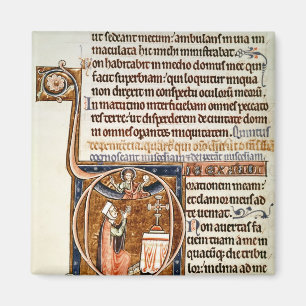 ut sedeant mecum: ambulans in uia in
maculata hic michi ministrabat.
Non habitabit in medio domus mee qui
facit superbiam: qui loquitur iniqua
non direxit in conspectu oculorum meorum.
In matutino interficiebam omnes peccato
res terre: ut disperderem de ciuitate domi
ni omnes operantes iniquitatem. Quintus
de penitentia.
ne exaudi
orationem meam: et
clamor meus ad
te ueniat.
Non auertas fa
ciem tuam a me
in quacumque die tribu
lor inclina ad me